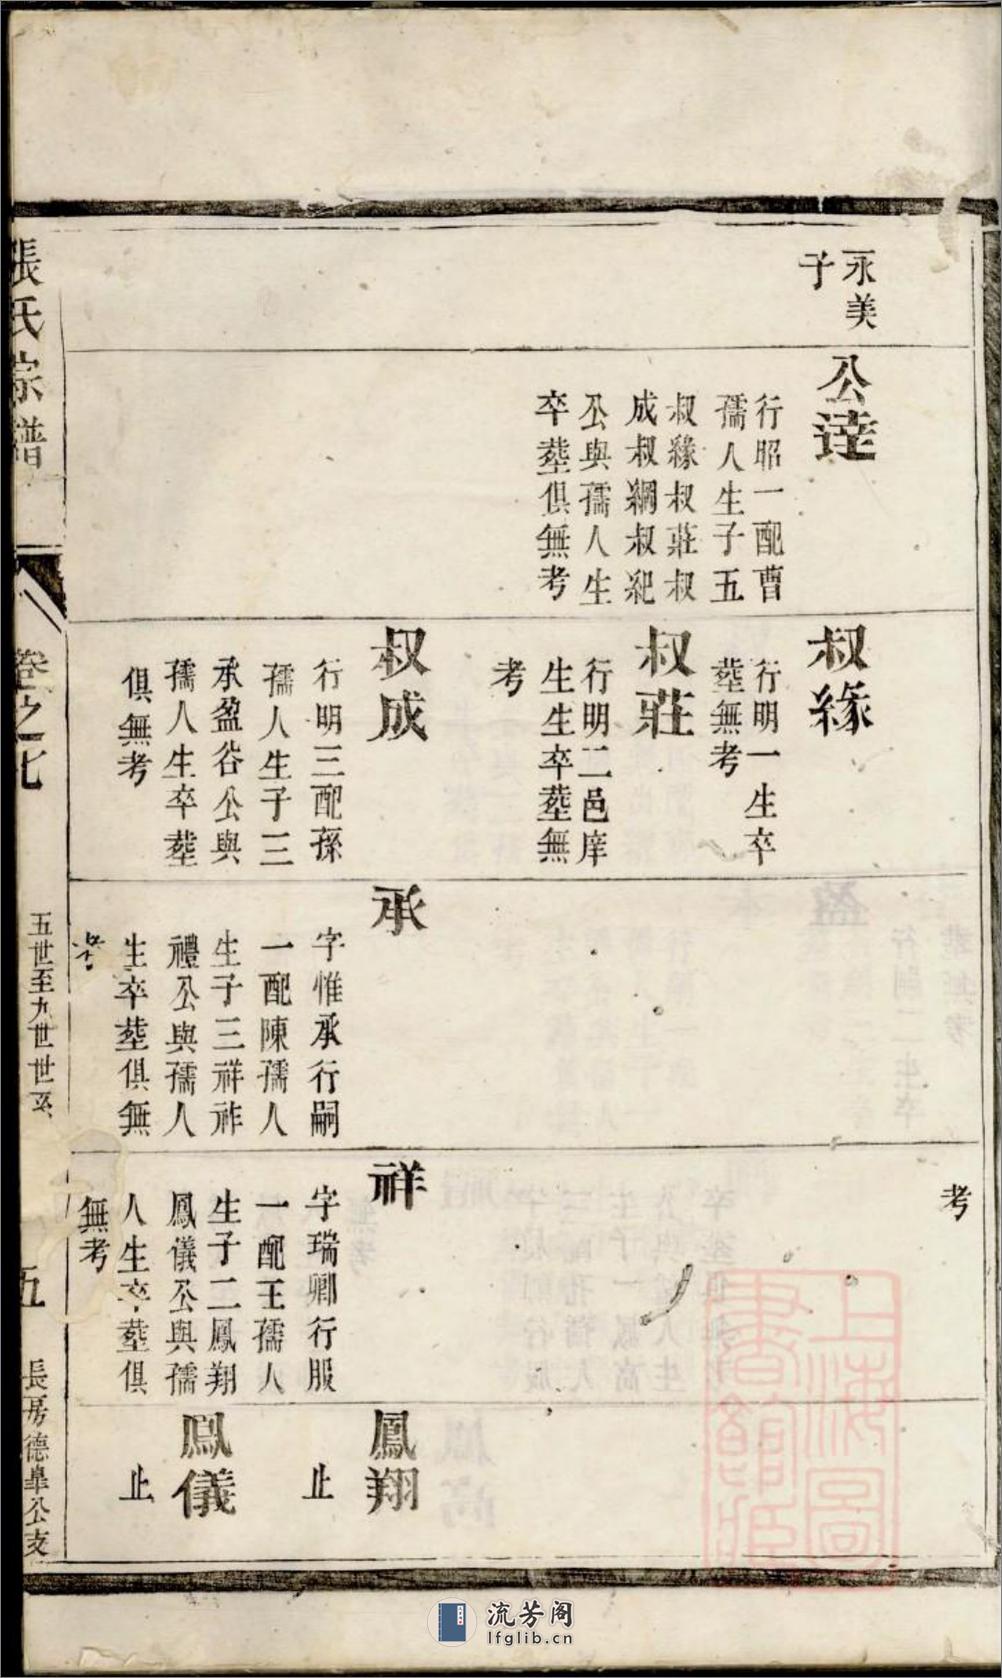 永美
子
公逹
行昭一配曹
孺人生子五
叔緣叔莊叔
成叔綱叔紀
公與孺人生
卒塟俱無考
叔緣
行明一生卒
塟無考
叔莊
行明二邑庠
生生卒塟無
考
叔成
行明三配孫
孺人生子三
承盈谷公與
孺人生卒塟
俱無考
承
字惟承行嗣
一配陳孺人
生子三祥祚
禮公與孺人
生卒塟俱無
考
考
祥
字瑞卿行服
一配王孺人
生子二鳳翔
鳳儀公與孺
人生卒塟俱
無考
鳳翔
止
鳳儀
止
張氏宗譜
卷之七
五世至九世世系
五
長房德皐公支
上海圖
書館藏
流芳阁
lfglib.cn